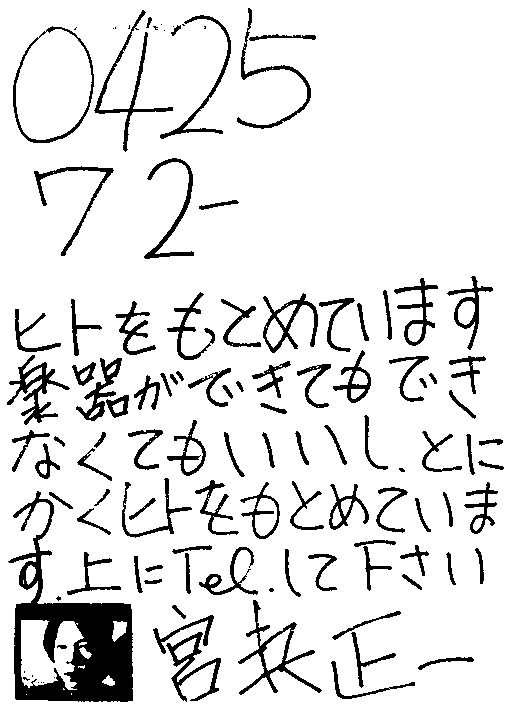 0425
72-
ヒトをもとめています
楽器ができてもでき
なくてもいいし、とに
かくヒトをもとめていま
す.上にTel.して下さい
宮 正一